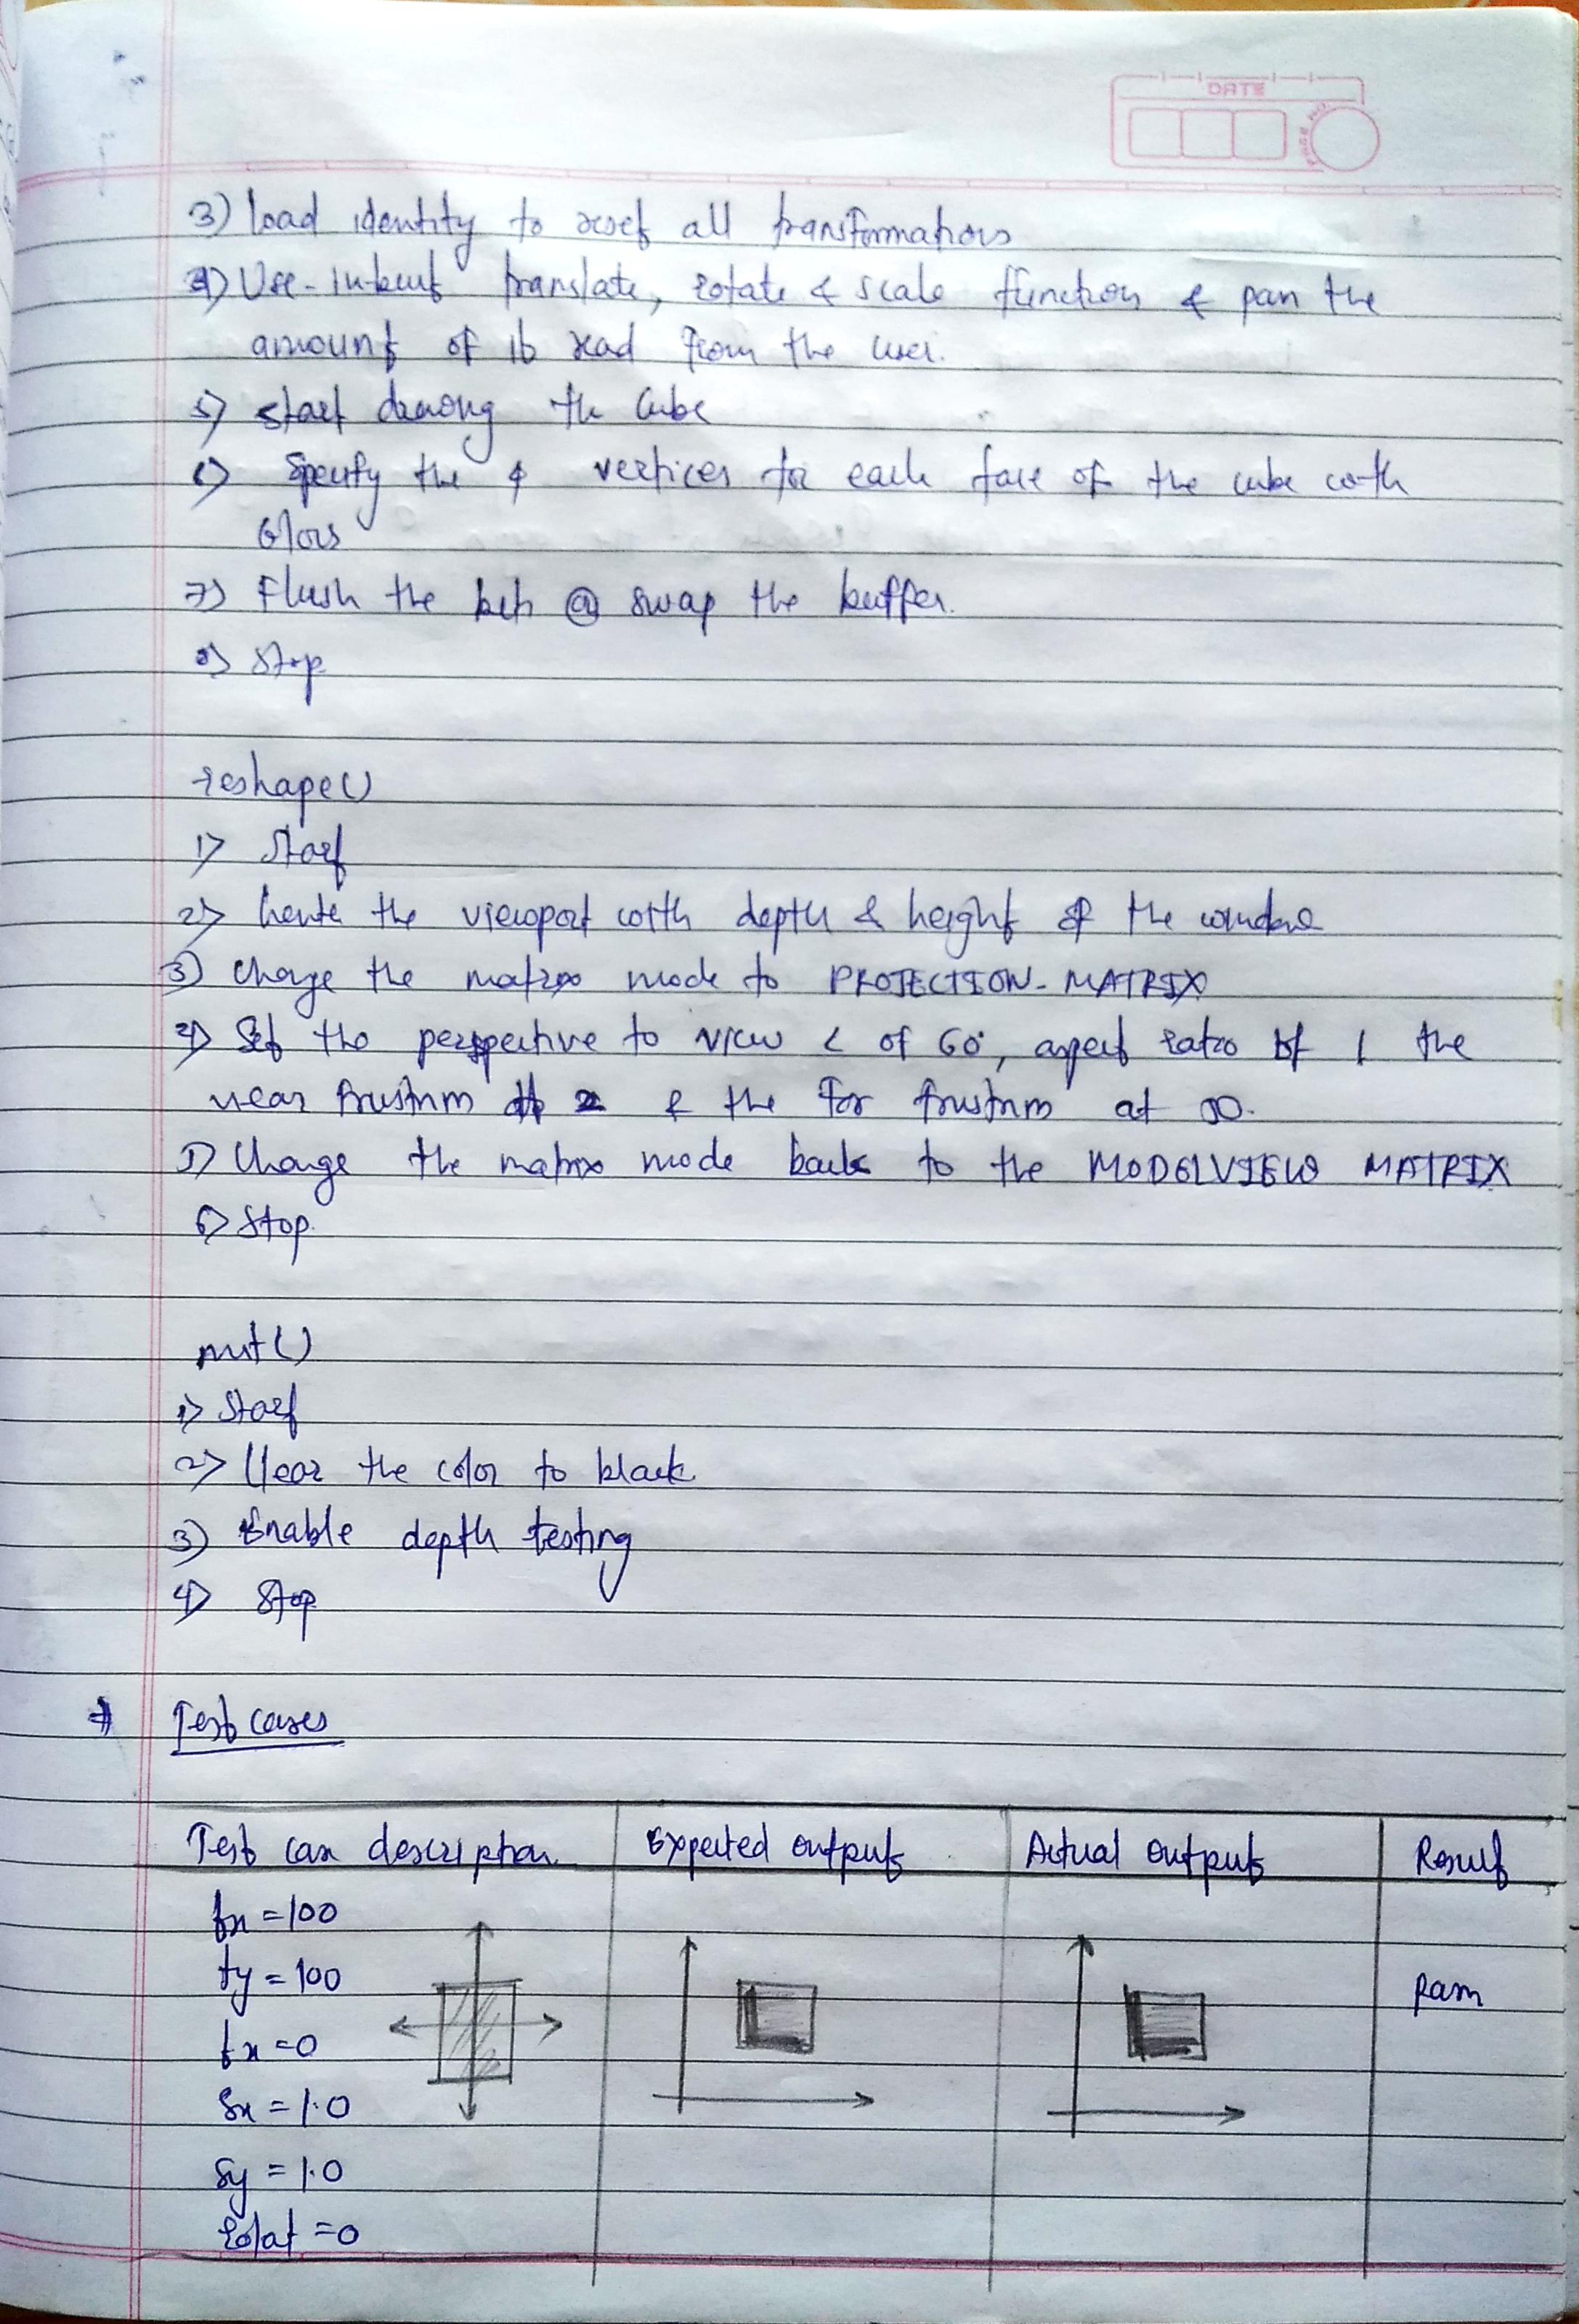 DATE
Page No
3) Load identity to reset all transformations
4) Use in-built translate, rotate & scale function & pan the
amount of read from the user.
5) start drawing the Cube
6) Specify the 4 vertices for each face of the cube with
Colors
7) Flush the @ swap the buffer.
8) Stop
reshape()
1) Start
2) the viewport with depth & height of the window
3) Change the matrix mode to PROJECTION-MATRIX
4) Set the perspective to view < of 60°, aspect ratio of 1 the
near frustum & the far frustum at
5) Change the matrix mode back to the MODELVIEW MATRIX
6) Stop.
init()
1) Start
2) Clear the color to black
3) Enable depth testing
4) Stop
Test cases
Test case description Expected output Actual output Result
tx = 100
ty = 100
tx = 0
Sx = 1.0
Sy = 1.0
rotat = 0
Pass